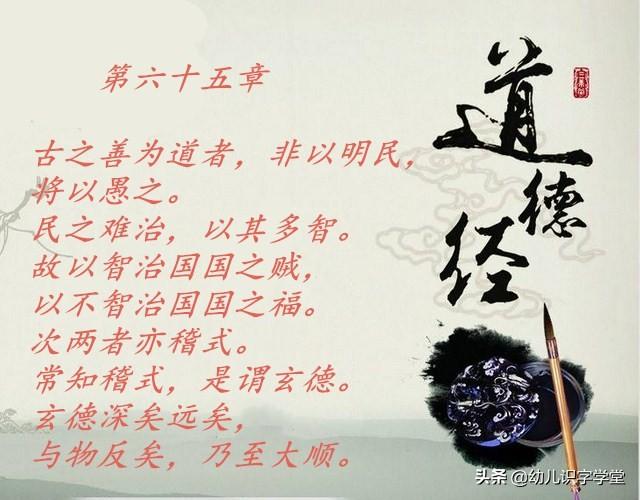 第六十五章
古之善为道者，非以明民，
将以愚之。
民之难治，以其多智。
故以智治国国之贼，
以不智治国国之福。
次两者亦稽式。
常知稽式，是谓玄德。
玄德深矣远矣，
与物反矣，乃至大顺。
道德经
头条 @幼儿识字学堂